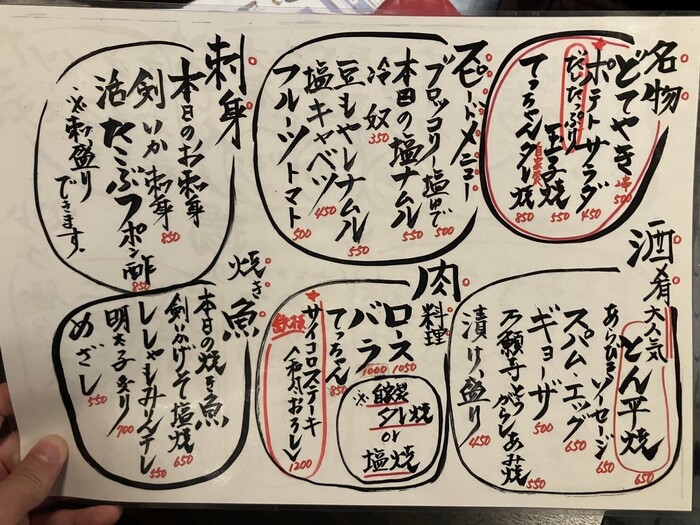 名物
どてやき 2本 500
ポテトサラダ 450
だったぷり玉子焼 550
てっちゃんタレ焼 850
自家製
スピードメニュー
ブロッコリー塩ゆで 500
本日の塩ナムル 550
冷奴 350
豆もやしナムル 550
塩キャベツ 450
フルーツトマト 500
刺身
本日のお刺身
剣いか刺身 850
活たこぶつポン酢 850
※刺盛り
できます。
酒肴
大人気
とん平焼 650
あらびきソーセージ 650
スパム・エッグ 650
ギョーザ 500
万願寺とうがらしあみ焼 550
漬け盛り 450
肉料理
ロース 1050
バラ 1000
てっちゃん 850
※自家製
タレ焼
or
塩焼
鉄板
サイコロステーキ
〈和風おろし〉 1200
焼き魚
本日の焼き魚
剣いかげそ塩焼 650
ししゃもみりん干し 550
明太子炙り 700
めざし 550